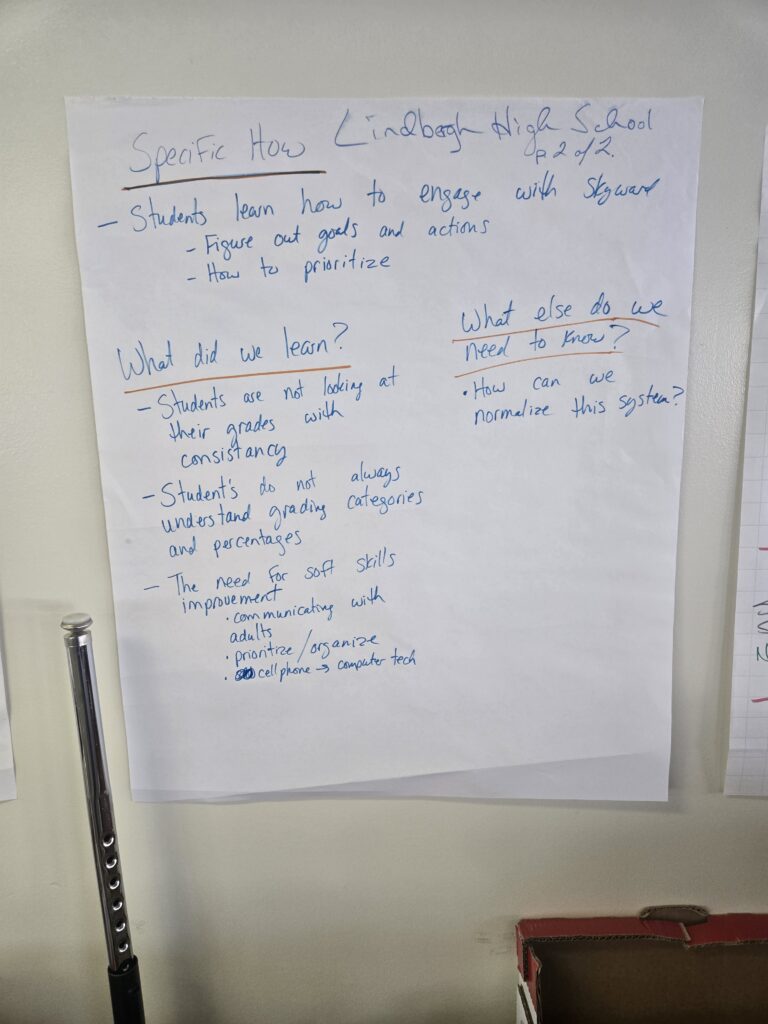 Specific How
Lindbergh High School
p. 2 of 2.
- Students learn how to engage with Skyward
- Figure out goals and actions
- How to prioritize
What did we learn?
- Students are not looking at
their grades with
consistancy
- Student's do not always
understand grading categories
and percentages
- The need for soft skills
improvement
• communicating with
adults
• prioritize/organize
• cell phone → computer tech
What else do we
need to know?
• How can we
normalize this system?